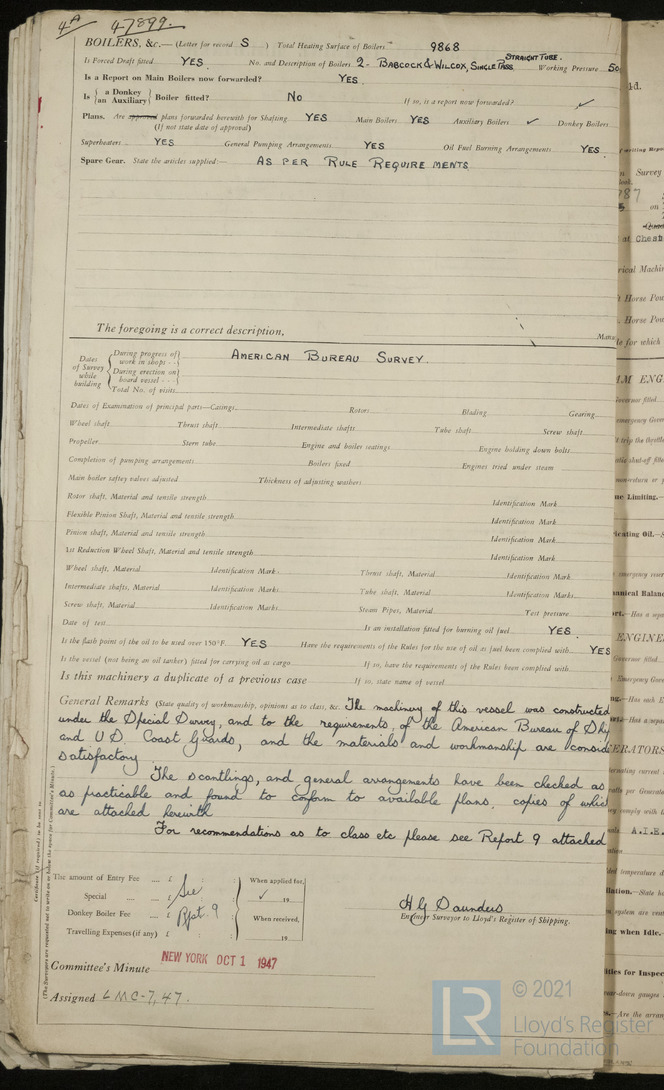 4A 47899.
BOILERS, &c.— (Letter for record S ) Total Heating Surface of Boilers 9868
Is Forced Draft fitted YES No. and Description of Boilers 2- BABCOCK & WILCOX, SINGLE PASS STRAIGHT TUBE. Working Pressure 50
Is a Report on Main Boilers now forwarded? YES.
Is { a Donkey / an Auxiliary } Boiler fitted? No If so, is a report now forwarded? ✓
Plans. Are approved plans forwarded herewith for Shafting YES Main Boilers YES Auxiliary Boilers ✓ Donkey Boilers
(If not state date of approval)
Superheaters YES General Pumping Arrangements YES Oil Fuel Burning Arrangements YES
Spare Gear. State the articles supplied:— AS PER RULE REQUIREMENTS
The foregoing is a correct description,
Manu
Dates of Survey while building
During progress of work in shops - -
During erection on board vessel - - -
Total No. of visits
AMERICAN BUREAU SURVEY.
Dates of Examination of principal parts—Casings Rotors Blading Gearing
Wheel shaft Thrust shaft Intermediate shafts Tube shaft Screw shaft
Propeller Stern tube Engine and boiler seatings Engine holding down bolts
Completion of pumping arrangements Boilers fixed Engines tried under steam
Main boiler saftey valves adjusted Thickness of adjusting washers
Rotor shaft, Material and tensile strength Identification Mark
Flexible Pinion Shaft, Material and tensile strength Identification Mark
Pinion shaft, Material and tensile strength Identification Mark
1st Reduction Wheel Shaft, Material and tensile strength Identification Mark
Wheel shaft, Material Identification Mark Thrust shaft, Material Identification Mark
Intermediate shafts, Material Identification Marks Tube shaft, Material Identification Marks
Screw shaft, Material Identification Marks Steam Pipes, Material Test pressure
Date of test Is an installation fitted for burning oil fuel YES.
Is the flash point of the oil to be used over 150°F. YES Have the requirements of the Rules for the use of oil as fuel been complied with YES
Is the vessel (not being an oil tanker) fitted for carrying oil as cargo If so, have the requirements of the Rules been complied with
Is this machinery a duplicate of a previous case If so, state name of vessel
General Remarks (State quality of workmanship, opinions as to class, &c. The machinery of this vessel was constructed
under the Special Survey, and to the requirements of the American Bureau of Ship
and U.S. Coast Guards, and the materials and workmanship are consid
satisfactory
The scantlings, and general arrangements have been checked as
as practicable and found to conform to available plans, copies of whic
are attached herewith
For recommendations as to class etc please see Report 9 attached
Certificate (if required) to be sent to
(The Surveyors are requested not to write on or below the space for Committee's Minute.)
The amount of Entry Fee £ : : When applied for,
Special £ See ✓ 19
Donkey Boiler Fee £ Rpt. 9 When received,
Travelling Expenses (if any) £ : : 19
H G Saunders
Engineer Surveyor to Lloyd's Register of Shipping.
Committee's Minute NEW YORK OCT 1 1947
Assigned LMC-7,47.
LR © 2021
Lloyd's Register
Foundation